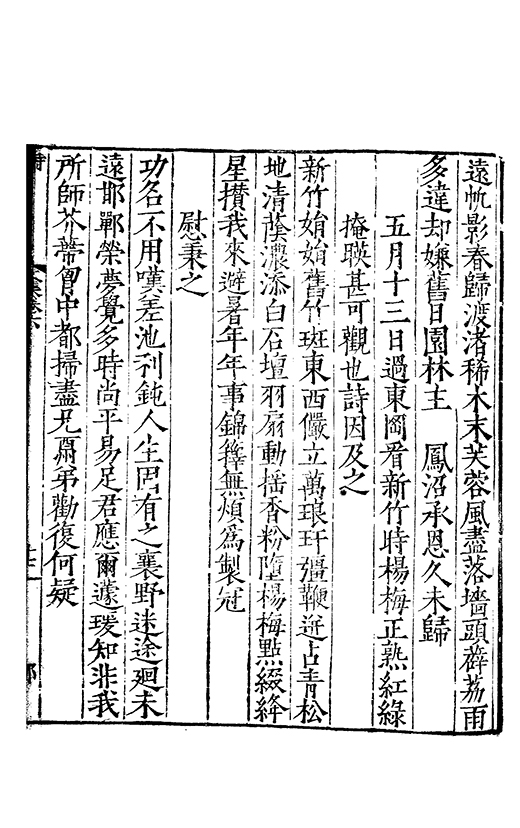 遠帆影春歸渡渚稀木末芙蓉風盡落墻頭薜荔雨
多違却嫌舊日園林主　鳳沼承恩久未歸
五月十三日過東岡看新竹時楊梅正熟紅綠
掩暎甚可觀也詩因及之
新竹娟娟舊竹斑東西儼立萬琅玕彊鞭逬占青松
地清蔭濃添白石壇羽扇動揺香粉墮楊梅點綴絳
星攢我來避暑年年事錦籜無煩爲製冠
慰秉之
功名不用嘆差池利鈍人生固有之襄野迷途迴未
遠邯鄲榮夢覺多時尚平易足君應爾蘧瑗知非我
所師芥蒂胷中都掃盡兄酬弟勸復何疑